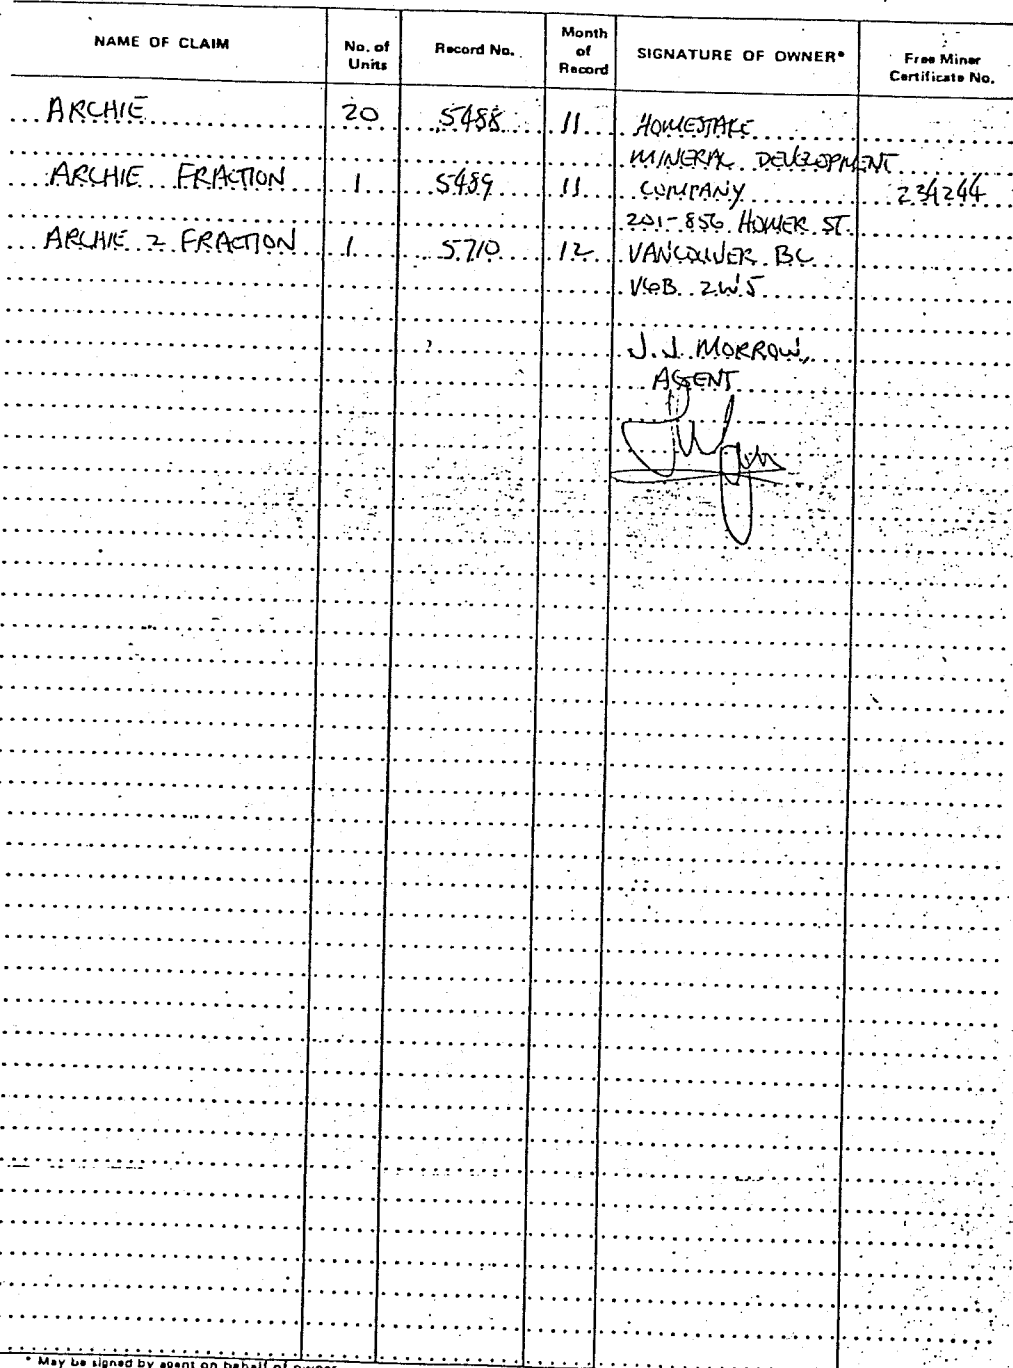 NAME OF CLAIM No. of Units Record No. Month of Record SIGNATURE OF OWNER* Free Miner Certificate No.
ARCHIE 20 5488 11 HOMESTAKE
MINERAL DEVELOPMENT
ARCHIE FRACTION 1 5489 11 COMPANY 234244
201-856 HOMER ST.
ARCHIE 2 FRACTION 1 5710 12 VANCOUVER BC
V6B 2W5
J.J. MORROW,
AGENT
* May be signed by agent on behalf of owner